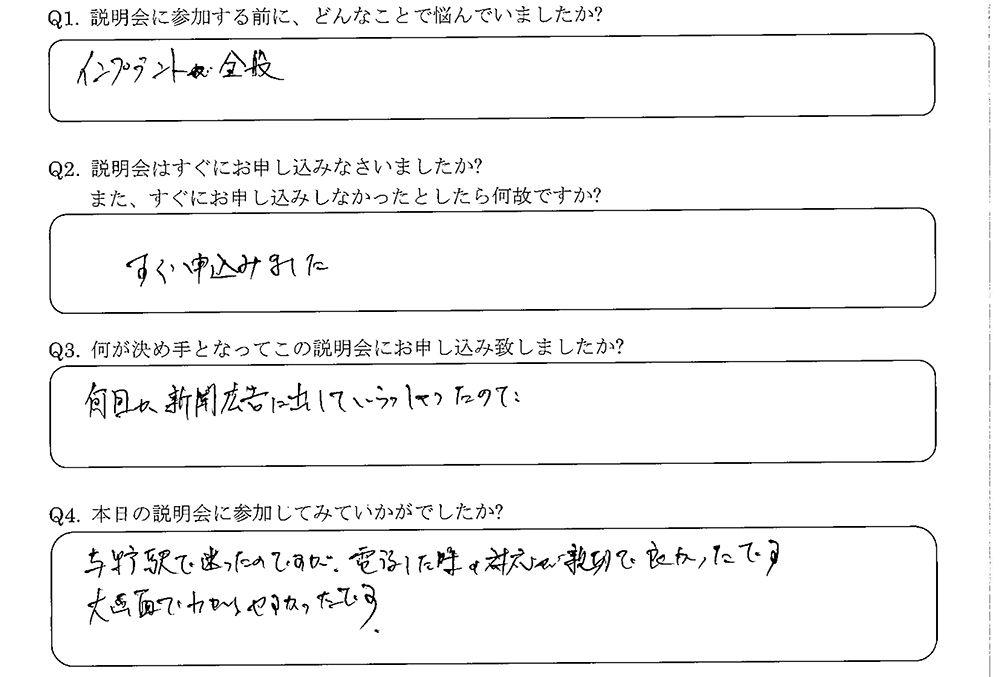 Q1. 説明会に参加する前に、どんなことで悩んでいましたか?
インプラントか 全般
Q2. 説明会はすぐにお申し込みなさいましたか?
また、すぐにお申し込みしなかったとしたら何故ですか?
すぐ申込みました
Q3. 何が決め手となってこの説明会にお申し込み致しましたか?
新聞広告に出していらっしゃったので
Q4. 本日の説明会に参加してみていかがでしたか?
与野駅で迷ったのですが、電話した時の対応が親切で良かったです
大画面でわかりやすかったです.